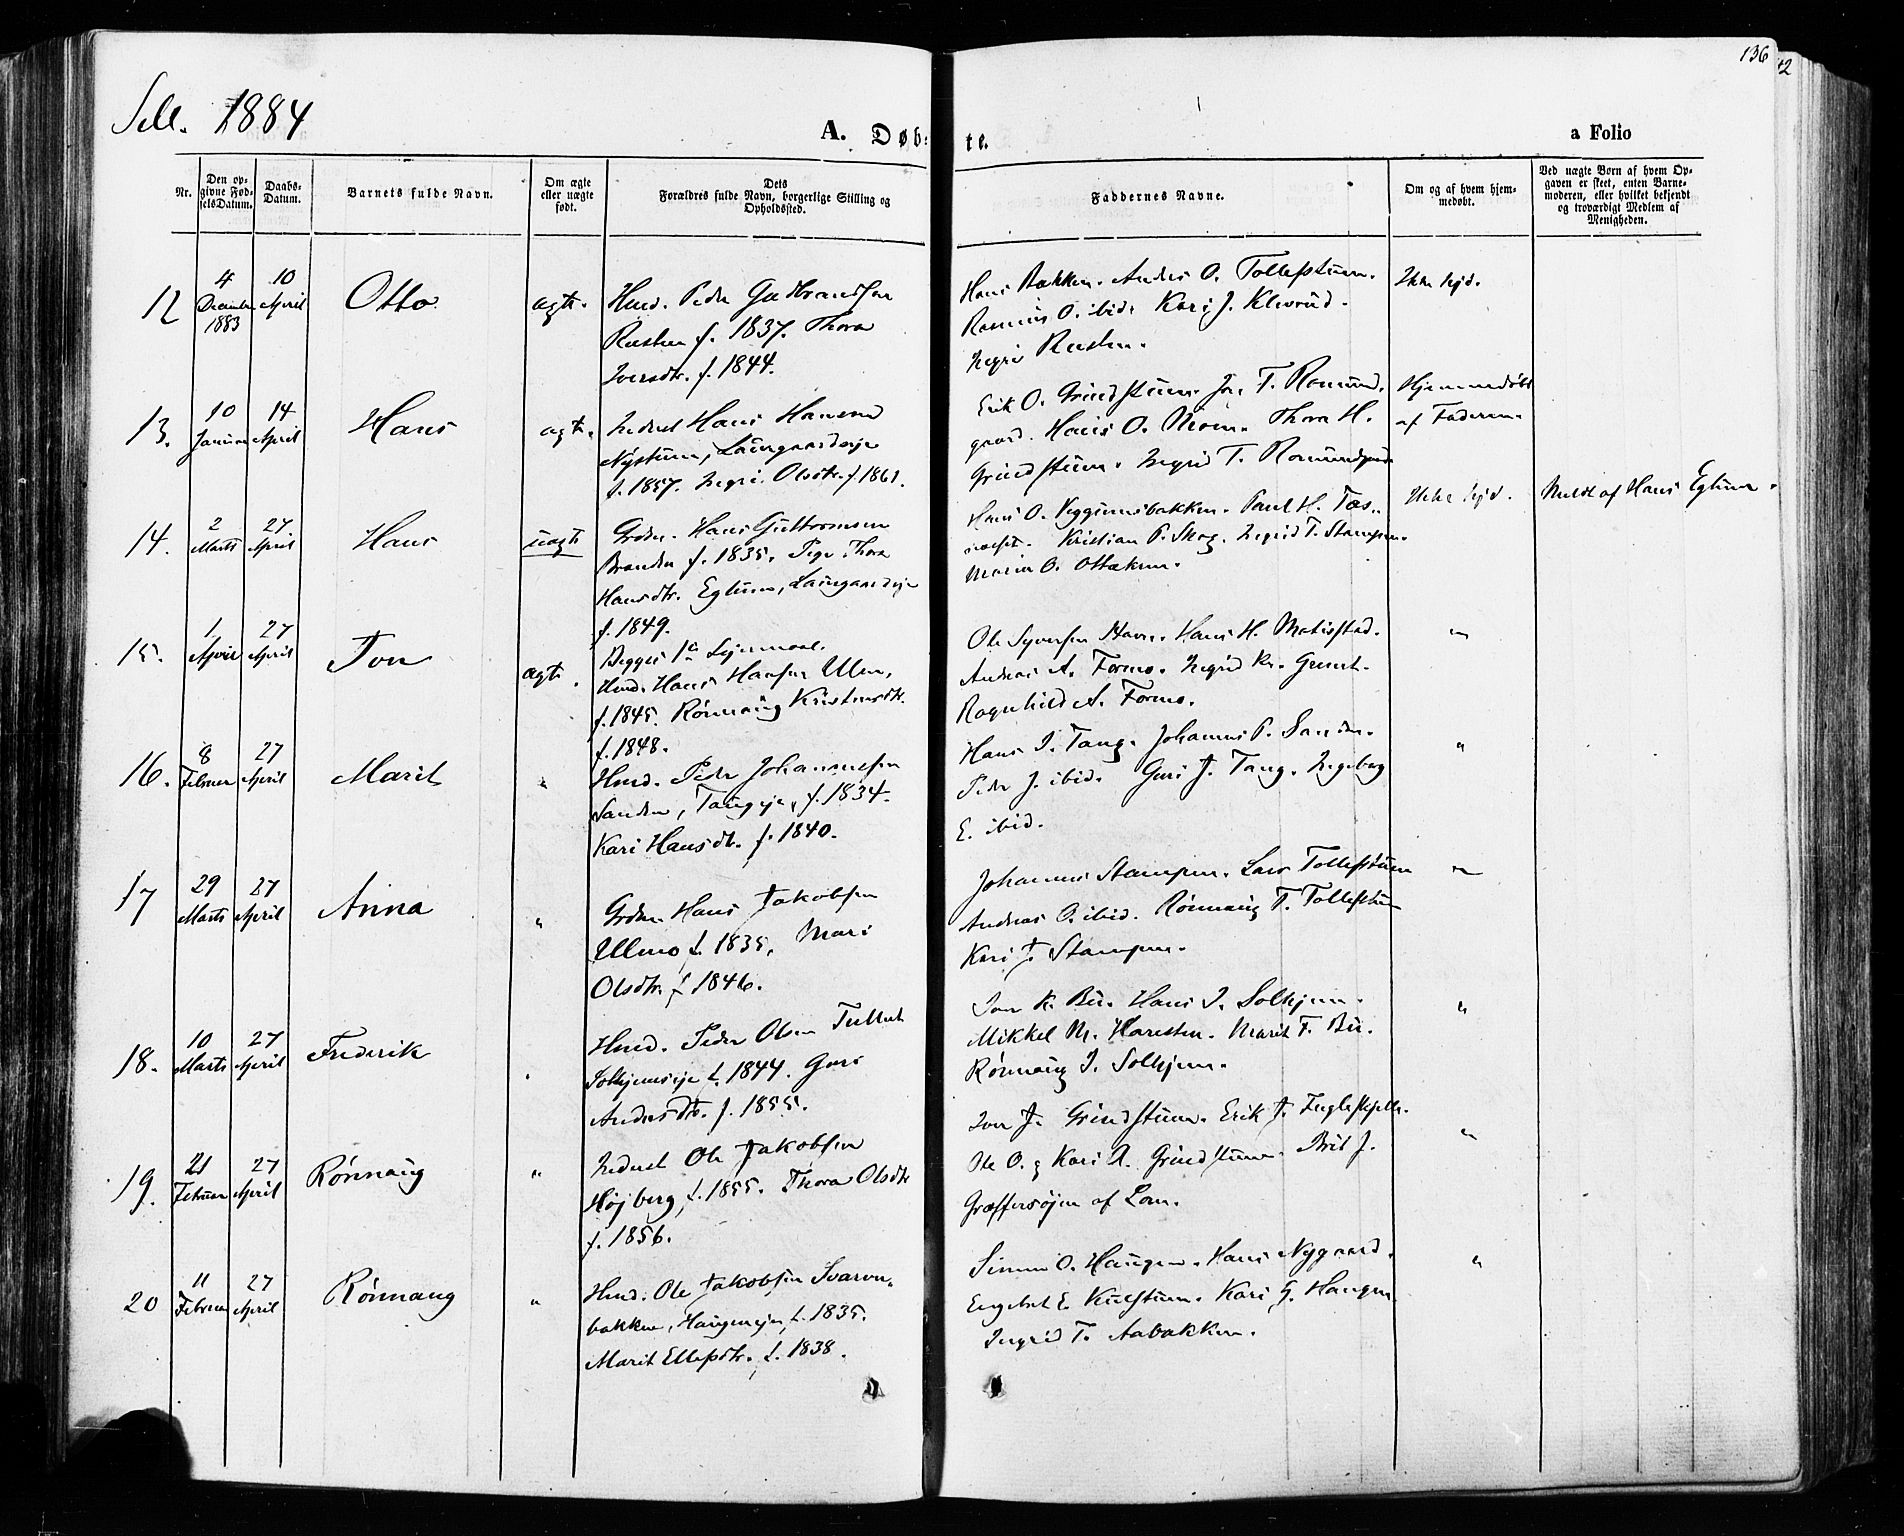 136
42
Sell. 1884
A. Døb-
te.
a Folio
Nr.
Den op-
givne Fød-
selsDatum.
Daabs-
Datum.
Barnets fulde Navn.
Om ægte
eller uægte
født.
Dets
Forældres fulde Navn, borgerlige Stilling og
Opholdssted.
Faddernes Navne.
Om og af hvem hjem-
medøbt.
Ved uægte Børn af hvem Op-
gaven er skeet, enten Barne-
moderen, eller hvilket bekjendt
og troværdigt Medlem af
Menigheden.
12
4
December
1883
10
April
Otto
ægte.
Hmd. Peder Gudbrandsen
Rusten f. 1837. Thora
Iversdtr. f. 1844.
Hans Bakken. Andrs O. Tollefstuen.
Rasmus O. ibid. Kari J. Kleverud.
Ingri Rusten.
Ikke hjd.
13.
10
Januar
14
April
Hans
ægte.
Inderst Hans Hansen
Nystuen, Laurgaardseje
f. 1857. Ingri Olsdtr. f. 1861.
Erik O. Grindstuen. Jon T. Romund-
gaard. Hans O. Moen. Thora H.
Grindstuen. Ingrid T. Romundgaard
Hjemmedøbt
af Faderen.
14.
2
Marts
27
April
Hans
uægte
Grdm. Hans Guttormsen
Branden f. 1835. Pige Thora
Hansdtr. Egluen, Laurgaardseje
f. 1849.
Begges 1ste Lejermaal.
Hans O. Veggumsbakken. Paul H.
Kristian P. Skog. Ingrid T. Stampen.
Maria O. Ottekren.
Ikke hjd.
Meldt af Hans Egluen.
15.
1
April
27
April
Jon
ægte.
Hmd. Hans Hansen Ulen,
f. 1845. Rønnaug Kristensdtr.
f. 1848.
Ole Syversen Hovn. Hans H. Matisstad.
Andreas A. Formo. Ingrid Kr.
Ragnhild A. Formo.
"
16.
8
Februar
27
April
Marit
"
Hmd. Peder Johannessen
Sanden, Tangeje, f. 1834.
Kari Hansdtr. f. 1840.
Hans I. Tang. Johannes P. Sanden.
Peder J. ibid. Guri J. Tang. Ingeborg
E. ibid.
"
17
29
Marts
27
April
Anna
"
Grdm. Hans Jakobsen
Ulmo f. 1835, Mari
Olsdtr. f 1846.
Johannes Stampen. Lars Tollefstuen
Andreas O. ibid. Rønnaug T. Tollefstuen
Kari J. Stampen.
"
18.
10
Marts
27
April
Frederik
"
Hmd. Peder Olsen
Solhjemseje f. 1844. Guri
Andersdtr. f. 1855.
Jon K. Bu. Hans I. Solhjem.
Mikkel M. Haresten. Marit F. Bu.
Rønnaug I. Solhjem.
"
19.
21
Februar
27
April
Rønnaug
"
Inderst Ole Jakobsen
Højberg, f. 1855. Thora Olsdtr
f. 1856.
Iver J. Grindstuen. Erik J.
Ole O. og Kari A. Grindstuen. Brit J.
af Lom.
"
20
11
Februar
27
April
Rønnaug
"
Hmd. Ole Jakobsen Svarvu-
bakken, Haugeneje, f. 1835.
Marit Ellefsdtr. f. 1838.
Simen O. Haugen. Hans Nygaard.
Engebret E. Kulstuen. Kari G. Haugen
Ingrid T. Aabakken.
"